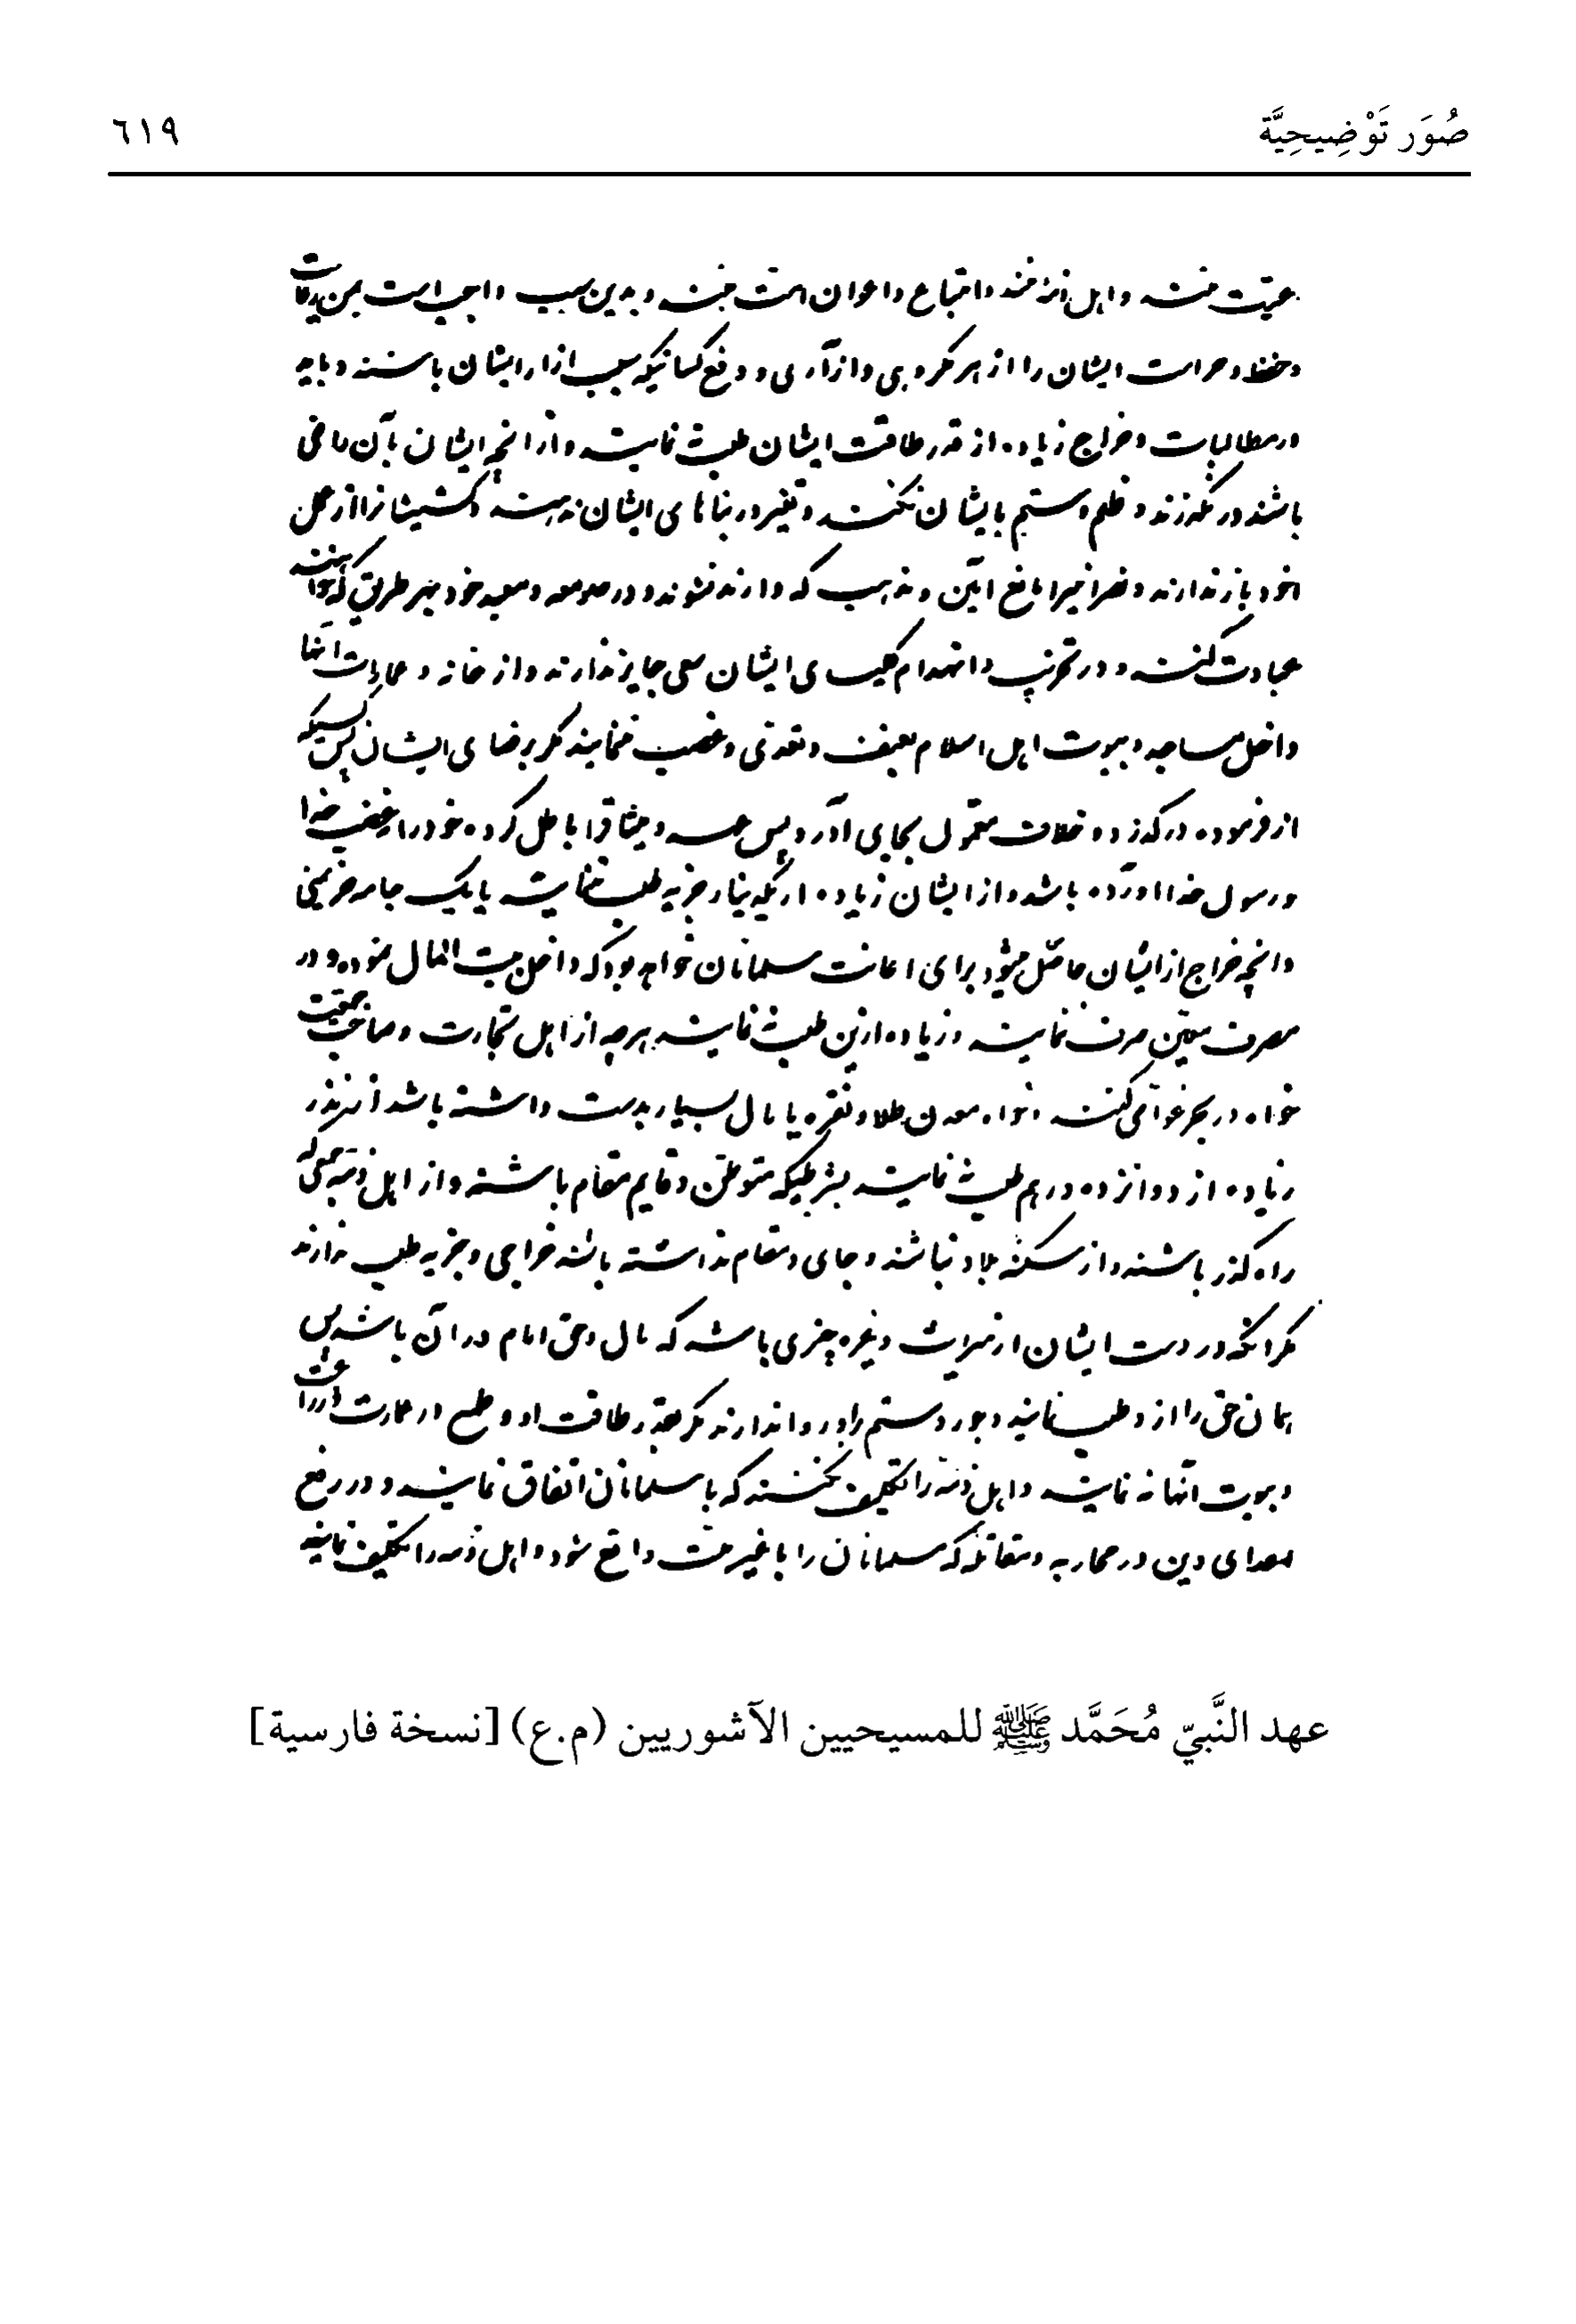 صُوَر تَوْضِيحِيَّة
٦١٩
رعیت منند و اهل ذمه منند و اتباع و اعوان امت منند و بدین سبب واجب است بمن رعایت
و حفظ و حراست ایشان را از هر مکروهی و ازاری و دفع کسانیکه سبب ازار ایشان باشند و باید
در مطالبات و خراج زیاده از قدر طاقت ایشان طلب ننمایند و از انچه ایشان بآن راضی
باشند در نگذرند و ظلم و ستم بایشان نکنند و تغیر در بناهای ایشان ندهند و کشیشانرا از محل
خود باز ندارند و نصرانیرا مانع آئین و مذهب که دارند نشوند و در صومعه و معبد خود بهر طریق که خواهند
عبادت کنند و در تخریب و انهدام کلیسای ایشان سعی جایز ندارند و از خانه و عمارات آنها
داخل مساجد و بیوت اهل اسلام بعنف و تعدی و غصب ننمایند مگر برضای ایشان پس کسیکه
از فرموده درگذرد و خلاف بجای آورد پس عهد و میثاق را باطل کرده خود را بغضب خدا
و رسول خدا اورده باشد و از ایشان زیاده از یکدینار جزیه طلب ننمایند یا یک جامه
و انچه خراج از ایشان حاصل میشود برای اعانت مسلمانان خواهد بود که داخل بیت المال نموده و در
مصرف معین صرف نمایند و زیاده ازین طلب ننمایند هرچه از اهل تجارت و صاحب
خواه در بحر غواصی کنند و خواه معدن طلا و نقره یا مال بسیار بدست داشته باشد
زیاده از دوانزده درهم طلب ننمایند بشرطیکه متوطن و قایم مقام باشند و از اهل ذمه جمعی که
راه گذر باشند و از سکنه بلاد نباشند و جای و مقام نداشته باشند خراجی و جزیه طلب ندارند
مگر انکه در دست ایشان از میراث و غیره چیزی باشد که مال و حق امام در آن باشد پس
همان حق را از و طلب نمایند و جور و ستم را بدو روا ندارند مگر بقدر طاقت او و طمع در عمارت
و بیوت آنها نه نمایند و اهل ذمه را تکلیف نکنند که با مسلمانان اتفاق نمایند و در رفع
اعدای دین در محاربه و مقاتله که مسلمانان را با غیر ملت واقع شود و اهل ذمه را تکلیف نمایند
عهد النَّبيّ مُحَمَّد ﷺ للمسيحيين الآشوريين (م.ع) [نسخة فارسية]